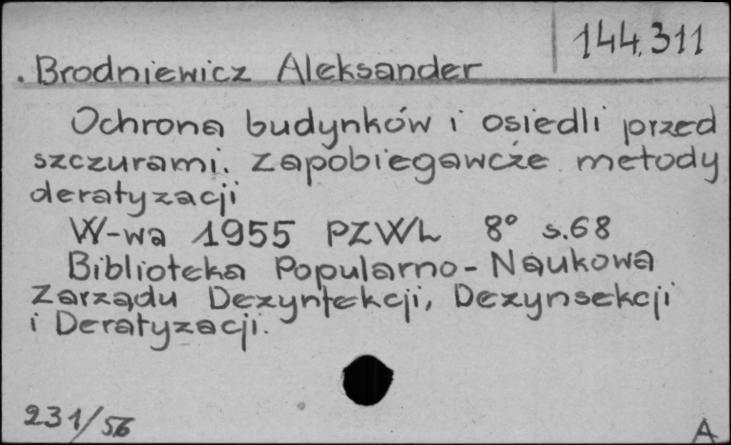 144.311
. Brodniewicz Aleksander
Ochrona budynków i osiedli przed
szczurami. Zapobiegawcze metody
deratyzacji
W-wa 1955 PZWL 8° s.68
Biblioteka Popularno-Naukowa
Zarządu Dezynfekcji, Dezynsekcji
i Deratyzacji.
231/56
A